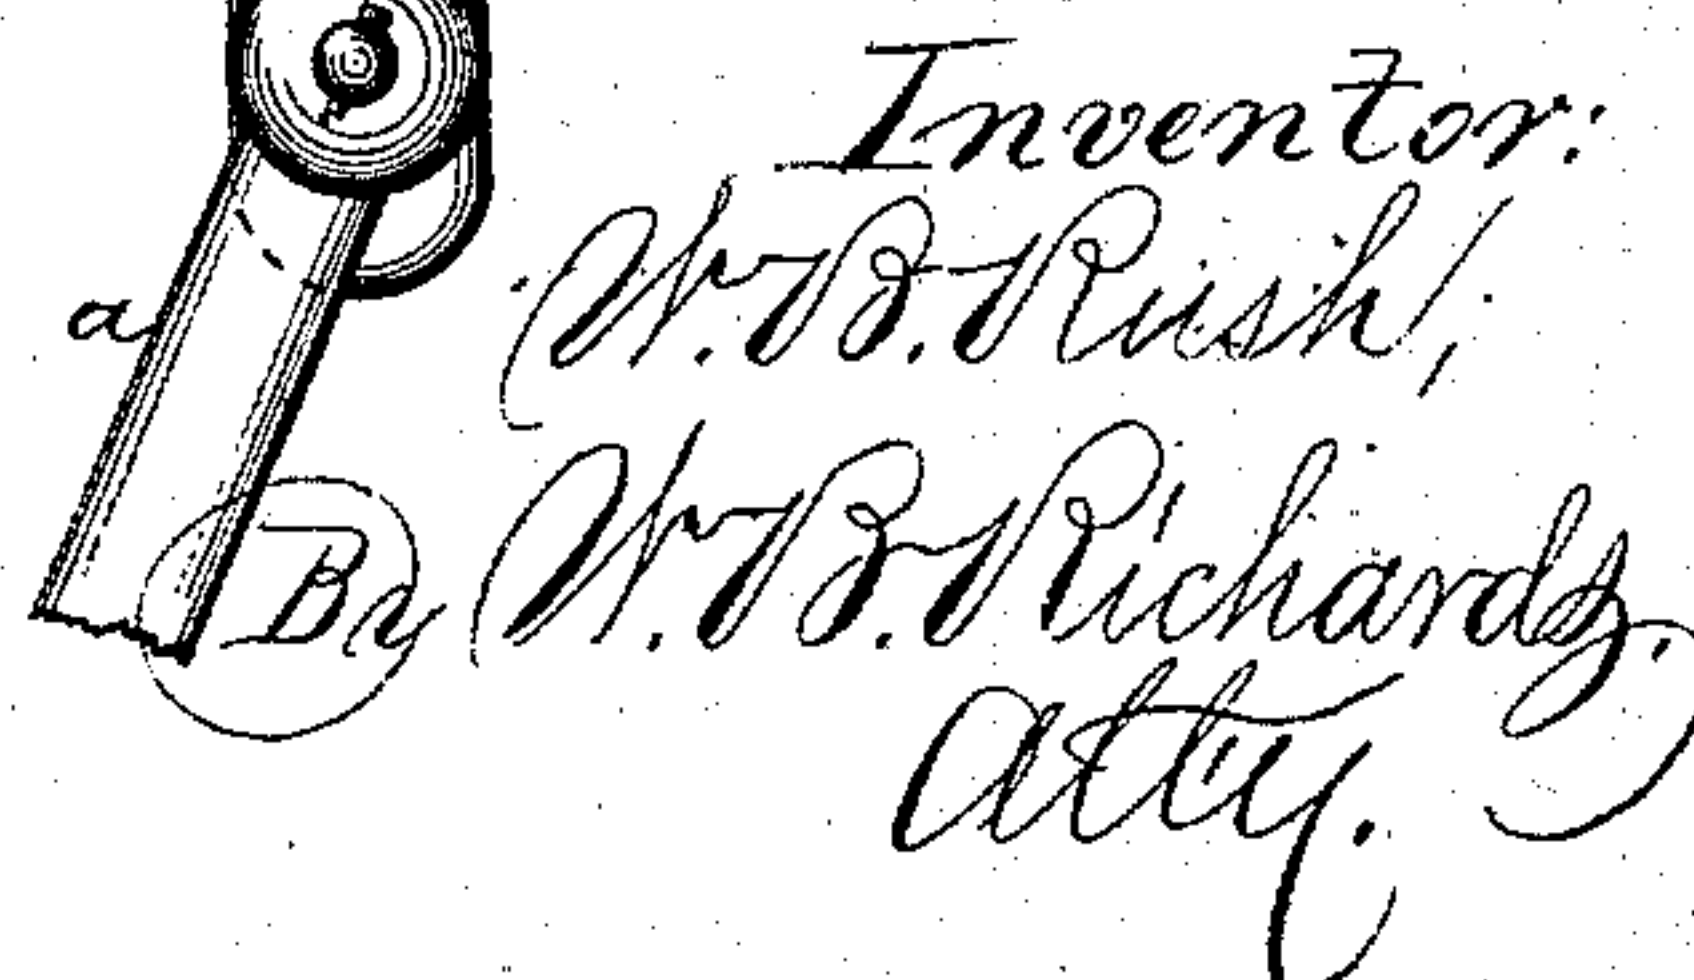 Inventor:
W. B. Rush,
a
By W. B. Richards.
Atty.